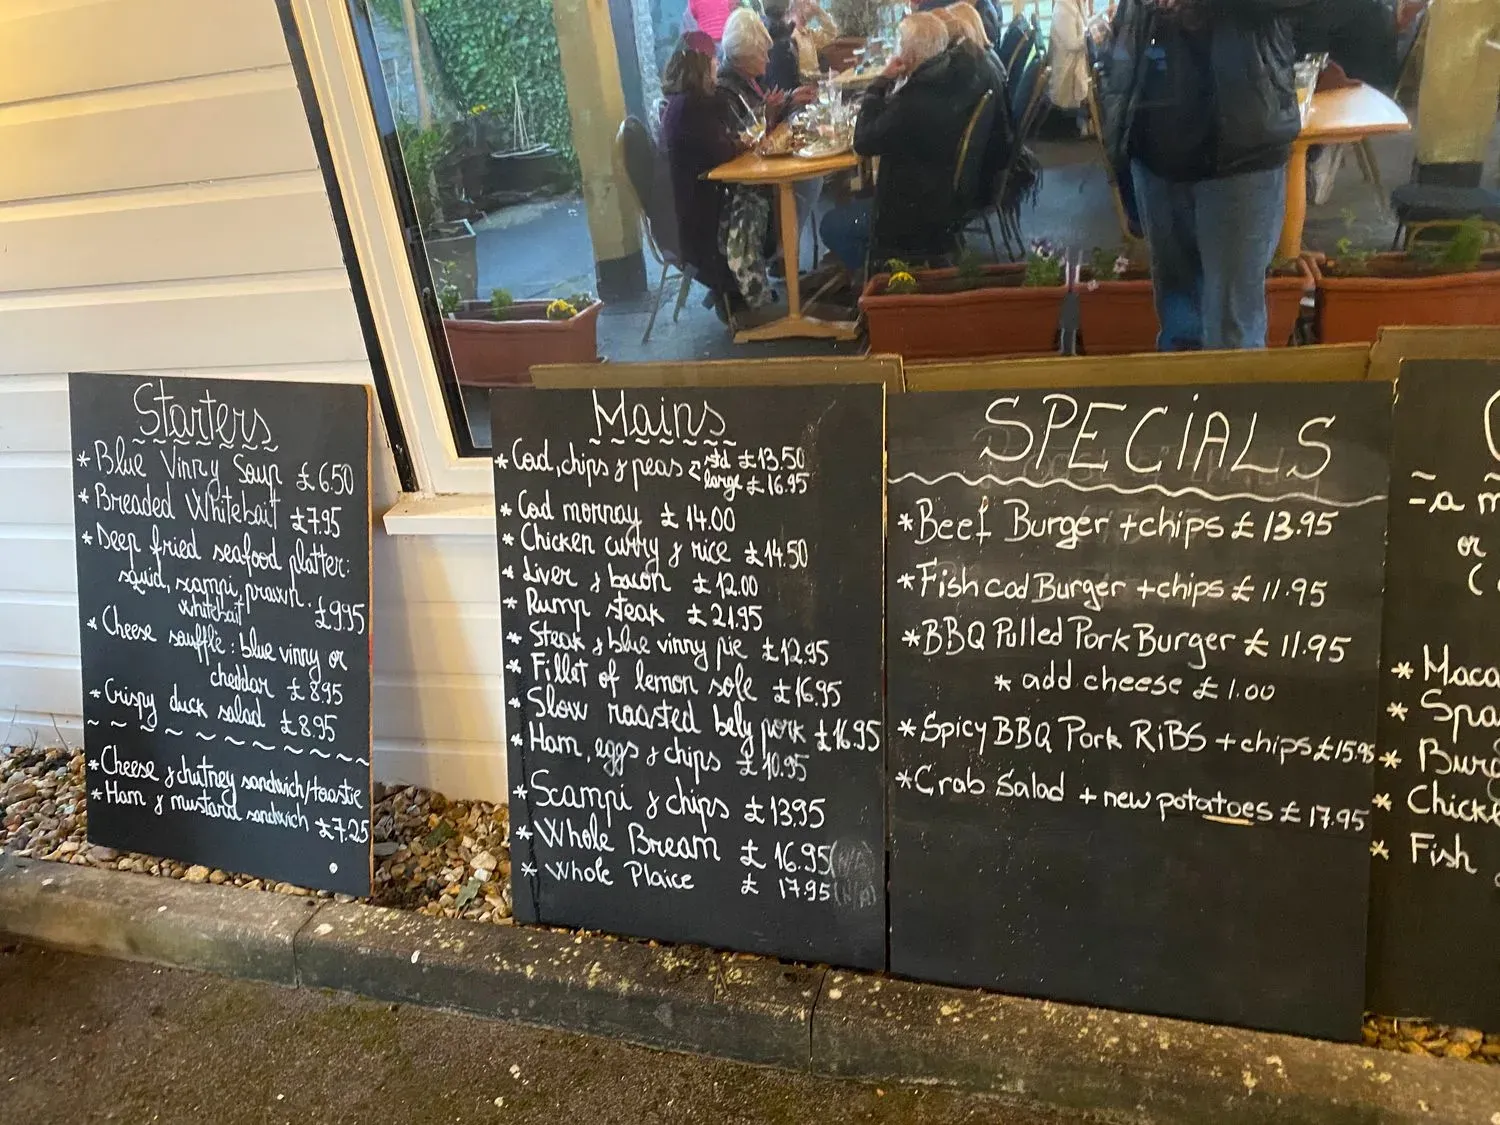 Starters
* Blue Vinny Soup £6.50
* Breaded Whitebait £7.95
* Deep fried seafood platter:
squid, scampi, prawn.
whitebait £9.95
* Cheese soufflé: blue vinny or
cheddar £8.95
* Crispy duck salad £8.95
* Cheese & chutney sandwich/toastie
* Ham & mustard sandwich £7.25
Mains
* Cod, chips & peas < std £13.50
large £16.95
* Cod mornay £14.00
* Chicken curry & rice £14.50
* Liver & bacon £12.00
* Rump steak £21.95
* Steak & blue vinny pie £12.95
* Fillet of lemon sole £16.95
* Slow roasted bely pork £16.95
* Ham, eggs & chips £10.95
* Scampi & chips £13.95
* Whole Bream £16.95 (N/A)
* Whole Plaice £17.95 (N/A)
SPECIALS
* Beef Burger + chips £13.95
* Fish cod Burger + chips £11.95
* BBQ Pulled Pork Burger £11.95
* add cheese £1.00
* Spicy BBQ Pork RiBS + chips £15.95
* Crab Salad + new potatoes £17.95
- a m
or
(
* Maca
* Spa
* Burg
* Chicke
* Fish